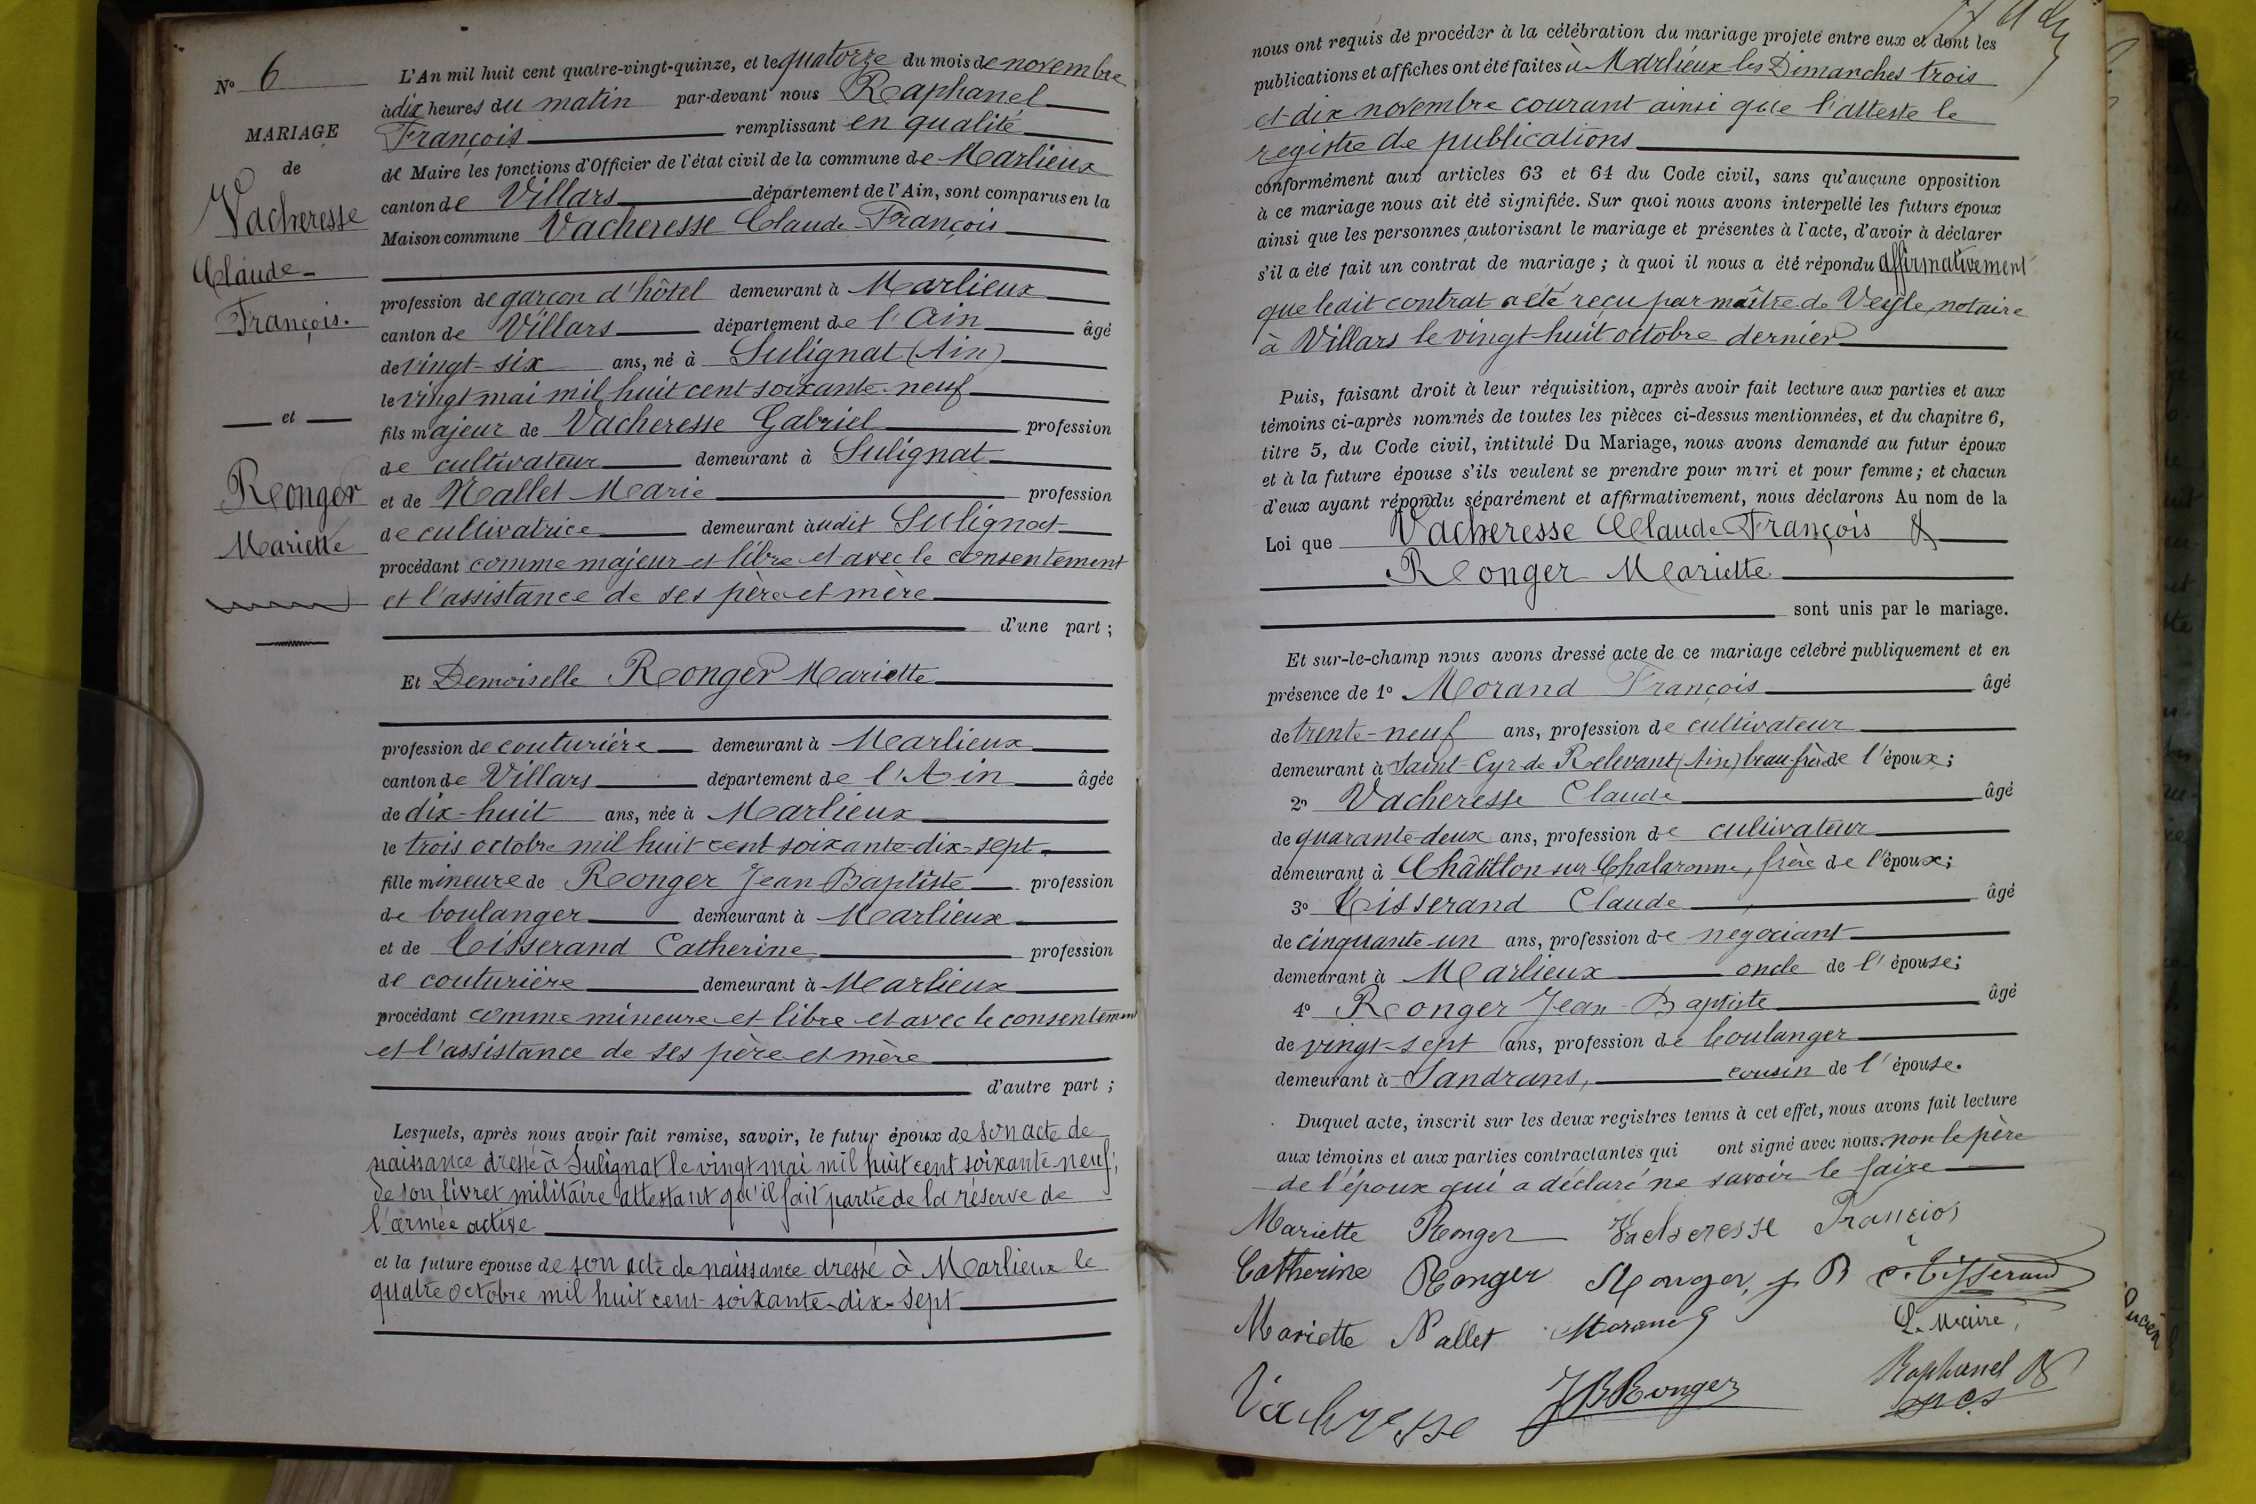 N° 6
MARIAGE
de
Vacheresse
Claude
François.
et
Ronger
Mariette
L'An mil huit cent quatre-vingt-quinze, et le quatorze du mois de novembre
à dix heures du matin par-devant nous Raphanel
François remplissant en qualité
de Maire les fonctions d'Officier de l'état civil de la commune de Marlieux
canton de Villars département de l'Ain, sont comparus en la
Maison commune Vacheresse Claude François
profession de garçon d'hôtel demeurant à Marlieux
canton de Villars département de l'Ain âgé
de vingt-six ans, né à Sulignat (Ain)
le vingt mai mil huit cent soixante-neuf
fils majeur de Vacheresse Gabriel profession
de cultivateur demeurant à Sulignat
et de Nallet Marie profession
de cultivatrice demeurant audit Sulignat
procédant comme majeur et libre et avec le consentement
et l'assistance de ses père et mère
d'une part ;
Et Demoiselle Ronger Mariette
profession de couturière demeurant à Marlieux
canton de Villars département de l'Ain âgée
de dix-huit ans, née à Marlieux
le trois octobre mil huit cent soixante-dix-sept
fille mineure de Ronger Jean-Baptiste profession
de boulanger demeurant à Marlieux
et de Tisserand Catherine profession
de couturière demeurant à Marlieux
procédant comme mineure et libre et avec le consentement
et l'assistance de ses père et mère
d'autre part ;
Lesquels, après nous avoir fait remise, savoir, le futur époux de son acte de
naissance dressé à Sulignat le vingt mai mil huit cent soixante-neuf;
de son livret militaire attestant qu'il fait partie de la réserve de
l'armée active
et la future épouse de son acte de naissance dressé à Marlieux le
quatre octobre mil huit cent soixante-dix-sept
nous ont requis de procéder à la célébration du mariage projeté entre eux et dont les
publications et affiches ont été faites à Marlieux les Dimanches trois
et dix novembre courant ainsi que l'atteste le
registre de publications
conformément aux articles 63 et 64 du Code civil, sans qu'aucune opposition
à ce mariage nous ait été signifiée. Sur quoi nous avons interpellé les futurs époux
ainsi que les personnes autorisant le mariage et présentes à l'acte, d'avoir à déclarer
s'il a été fait un contrat de mariage ; à quoi il nous a été répondu affirmativement
que ledit contrat a été reçu par maître de Veyle, notaire
à Villars le vingt-huit octobre dernier
Puis, faisant droit à leur réquisition, après avoir fait lecture aux parties et aux
témoins ci-après nommés de toutes les pièces ci-dessus mentionnées, et du chapitre 6,
titre 5, du Code civil, intitulé Du Mariage, nous avons demandé au futur époux
et à la future épouse s'ils veulent se prendre pour mari et pour femme ; et chacun
d'eux ayant répondu séparément et affirmativement, nous déclarons Au nom de la
Loi que Vacheresse Claude François &
Ronger Mariette
sont unis par le mariage.
Et sur-le-champ nous avons dressé acte de ce mariage célébré publiquement et en
présence de 1° Morand François âgé
de trente-neuf ans, profession de cultivateur
demeurant à Saint-Cyr-de Relevant (Ain) beau frère de l'époux ;
2° Vacheresse Claude âgé
de quarante-deux ans, profession de cultivateur
demeurant à Châtillon sur Chalaronne, frère de l'époux ;
3° Tisserand Claude âgé
de cinquante-un ans, profession de négociant
demeurant à Marlieux oncle de l'épouse ;
4° Ronger Jean-Baptiste âgé
de vingt-sept ans, profession de boulanger
demeurant à Sandrans, cousin de l'épouse.
Duquel acte, inscrit sur les deux registres tenus à cet effet, nous avons fait lecture
aux témoins et aux parties contractantes qui ont signé avec nous. non le père
de l'époux qui a déclaré ne savoir le faire
Mariette Ronger Vacheresse François
Catherine Ronger Ronger, J B C. Tisserand
Mariette Nallet Morand
Le Maire,
Vachresse JBRonger Raphanel